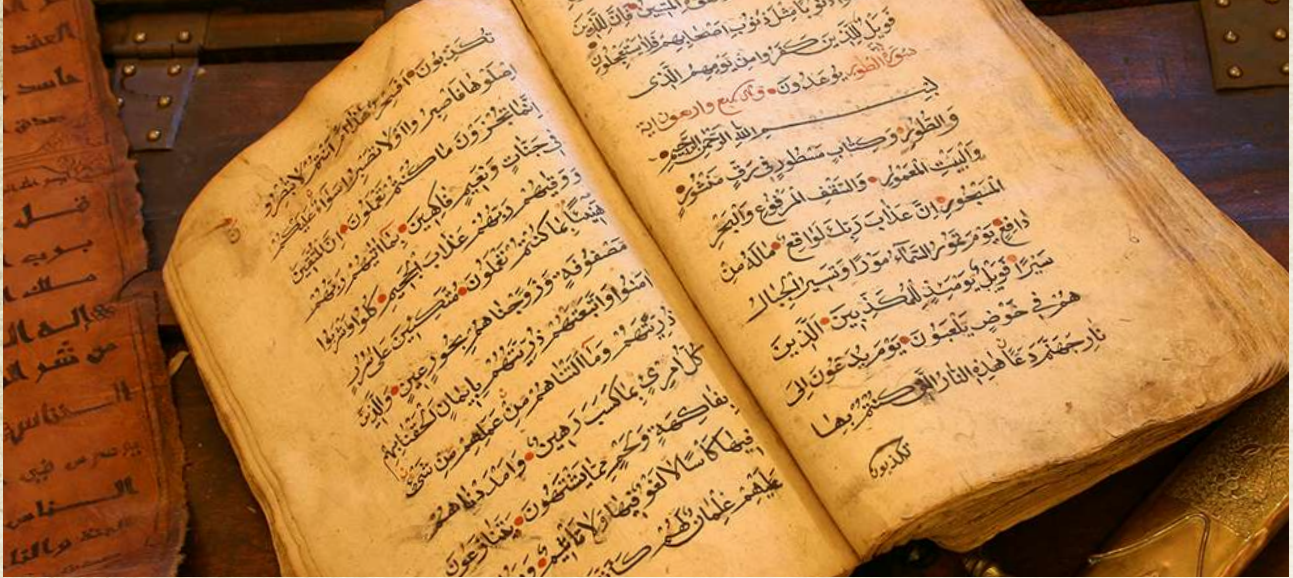 المتين فان للذين
ذنوبا مثل ذنوب اصحابهم فلا يستعجلون
فويل للذين كفروا من يومهم الذي
يوعدون سورة الطور وهي سبع واربعون اية
بسم الله الرحمن الرحيم
والطور وكتاب مسطور في رق منشور
والبيت المعمور والسقف المرفوع والبحر
المسجور ان عذاب ربك لواقع ماله من
دافع يوم تمور السماء مورا وتسير الجبال
سيرا فويل يومئذ للمكذبين الذين
هم في خوض يلعبون يوم يدعون الى
نار جهنم دعا هذه النار التي كنتم بها
تكذبون
تكذبون افسحر هذا ام انتم لا تبصرون
اصلوها فاصبروا اولا تصبروا سواء عليكم
انما تجزون ما كنتم تعملون ان المتقين
في جنات ونعيم فاكهين بما اتيهم ربهم
ووقيهم ربهم عذاب الجحيم كلوا واشربوا
هنيئا بما كنتم تعملون متكئين على سرر
مصفوفة وزوجناهم بحور عين والذين
امنوا واتبعتهم ذريتهم بايمان الحقنا بهم
ذريتهم وما التناهم من عملهم من شيء
كل امرئ بما كسب رهين وامددناهم
بفاكهة ولحم مما يشتهون يتنازعون
فيها كأسا لا لغو فيها ولا تأثيم
عليهم غلمان لهم
العقد
حاسد
قل
برب
ملك
اله ال
من شر ال
الخناس
يوسوس في
الناس
الجنة والنا